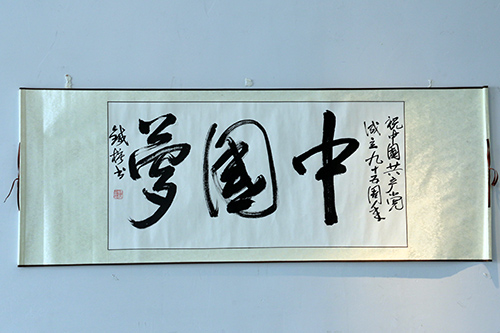 祝中國共产党
成立九十五周年
中國夢
鐵梅书